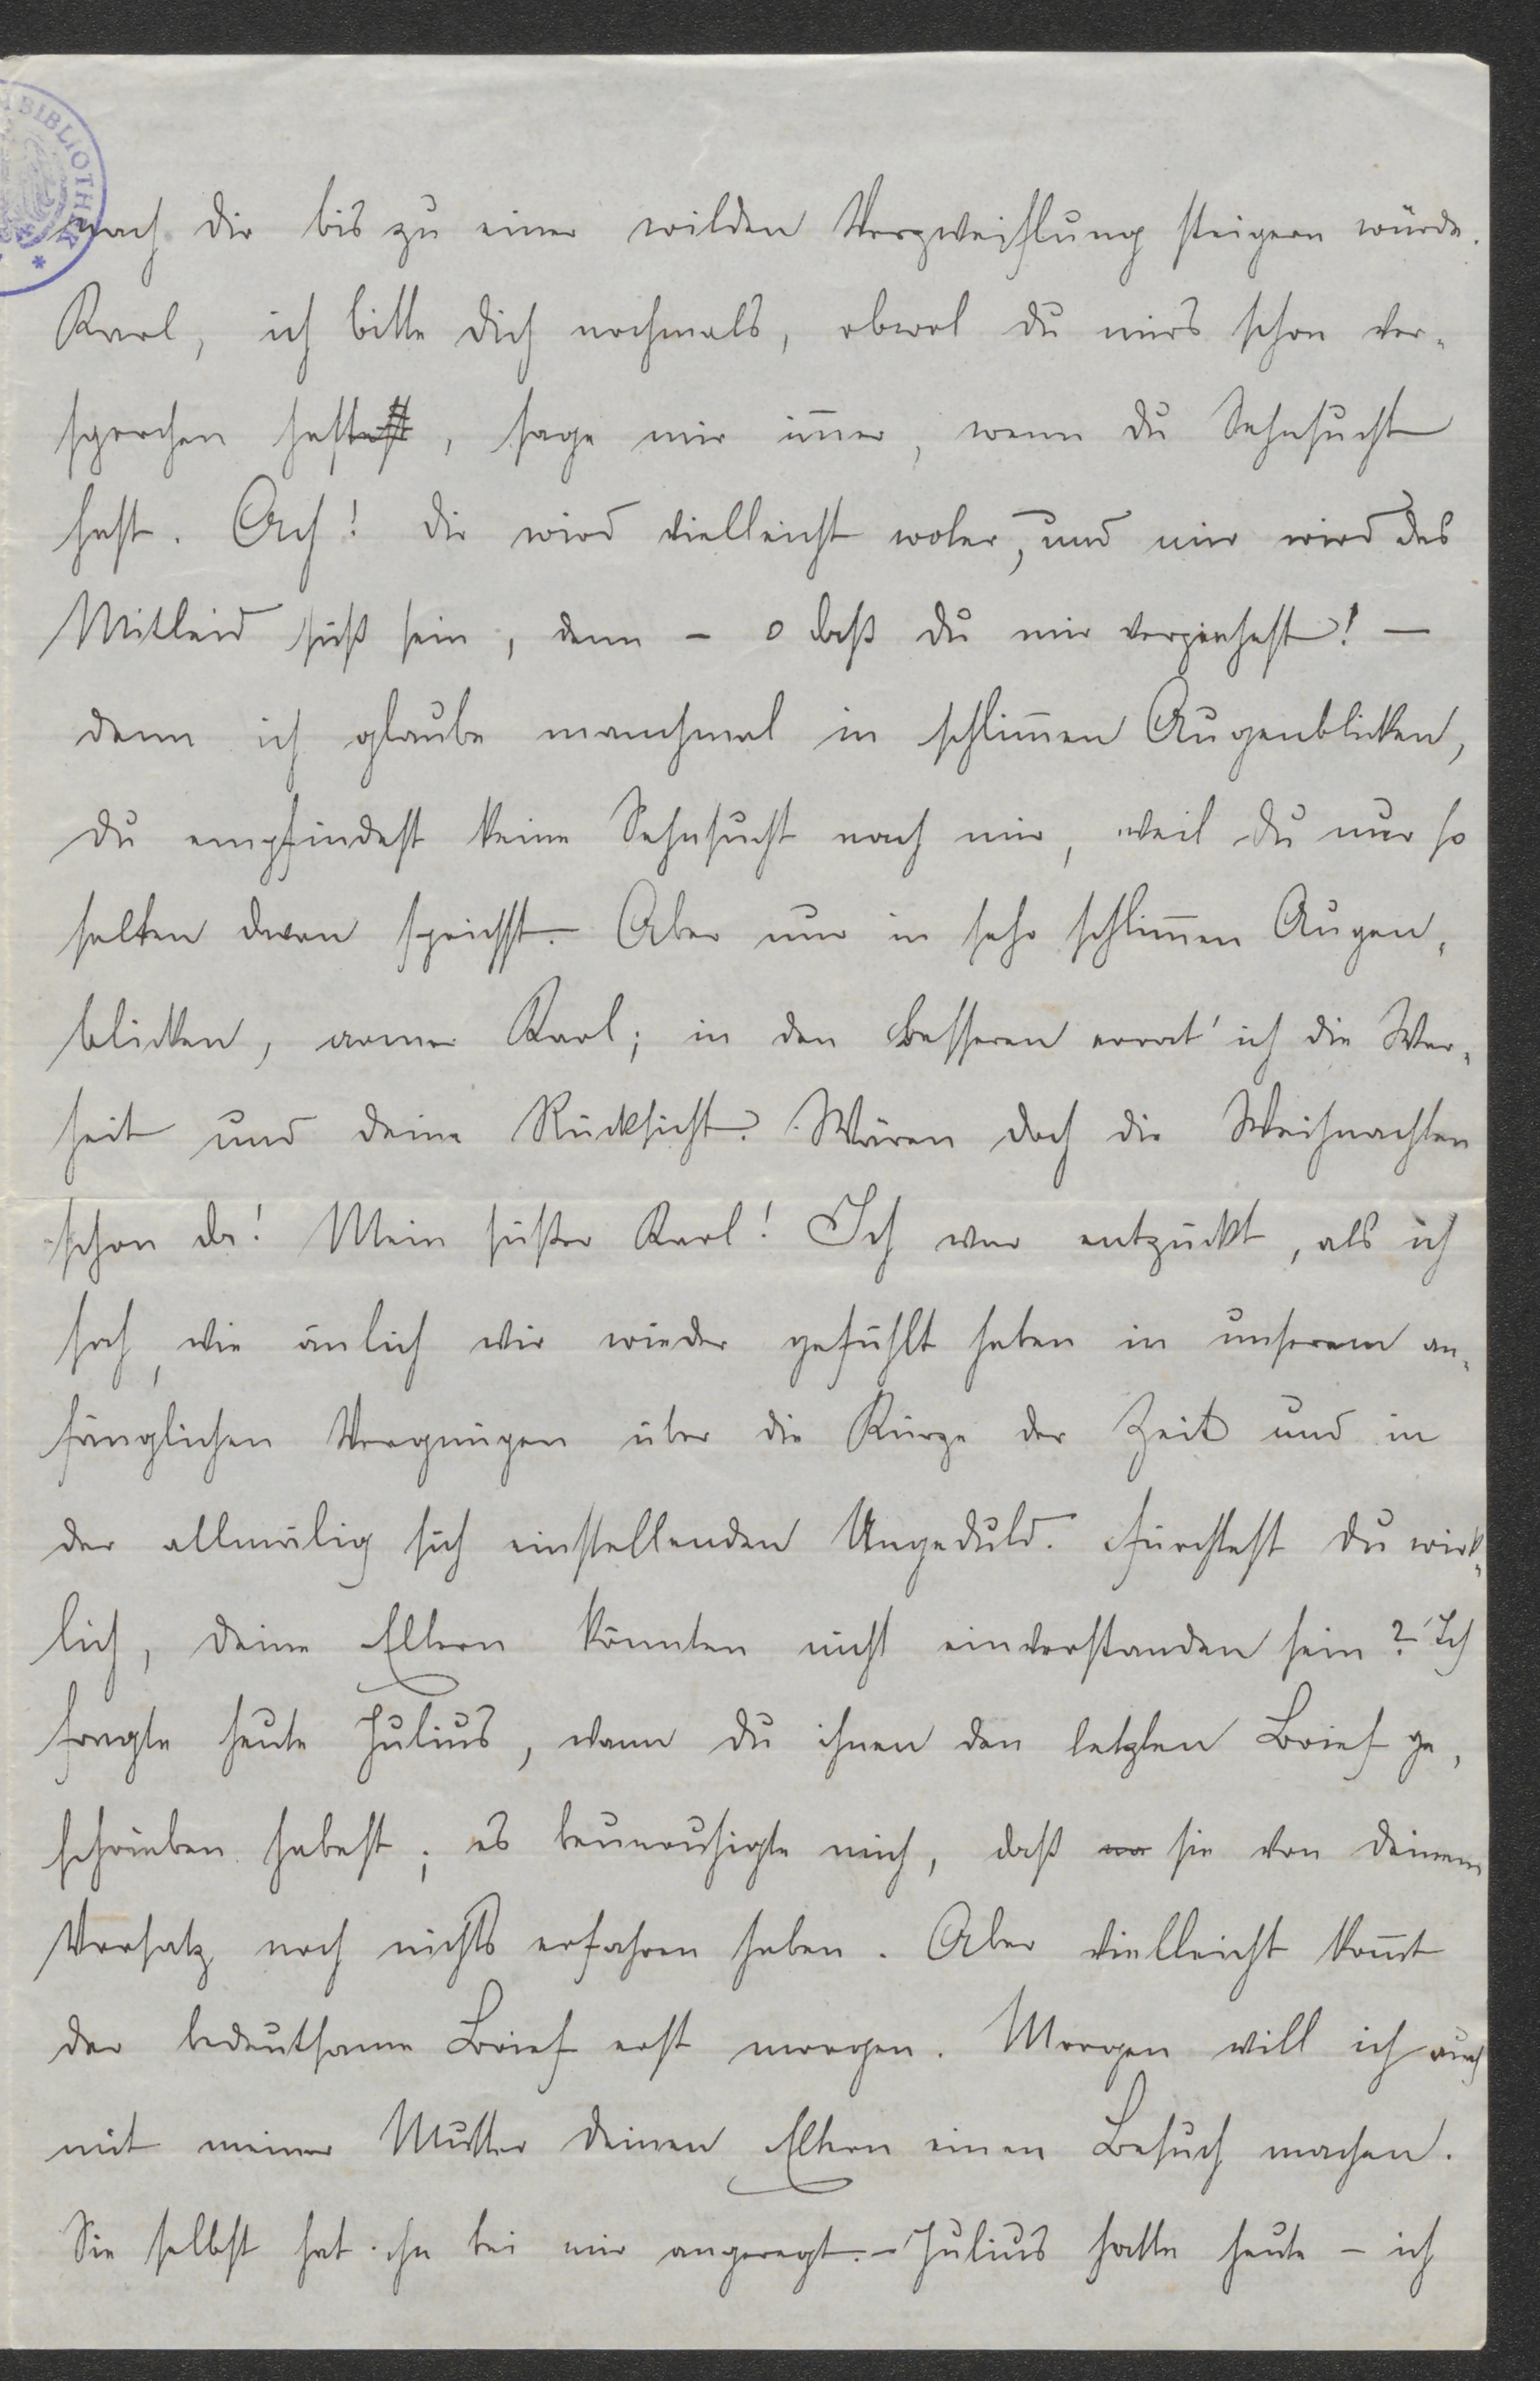 BIBLIOTHEK
nach dir bis zu einer wilden Verzweiflung steigern würde.
Karl, ich bitte dich nochmals, obwol du mirs schon ver-
sprochen hast, sage mir im̄er, wenn du Sehnsucht
hast. Ach! dir wird vielleicht woler, und mir wird das
Mitleid süß sein, denn – o daß du mir verziehest! –
denn ich glaube manchmal in schlim̄en Augenblicken,
du empfindest keine Sehnsucht nach mir, weil du nur so
selten davon sprichst. Aber nur in sehr schlim̄en Augen-
blicken, armer Karl; in den besseren errat' ich die War-
heit und deine Rücksicht. Wären doch die Weihnachten
schon da! Mein süßer Karl! Ich war entzückt, als ich
sah, wie änlich wir wieder gefühlt haben in unserem an-
fänglichen Vergnügen über die Kürze der Zeit und in
der allmälig sich einstellenden Ungeduld. Fürchtest du wirk-
lich, deine Eltern könnten nicht einverstanden sein? Ich
fragte heute Julius, wann du ihnen den letzten Brief ge-
schrieben habest; es beunruhigte mich, daß sie von deinem
Vorsatz noch nichts erfahren haben. Aber vielleicht kom̄t
der bedeutsame Brief erst morgen. Morgen will ich auch
mit meiner Mutter deinen Eltern einen Besuch machen.
Sie selbst hat ihn bei mir angeregt. – Julius hatte heute – ich